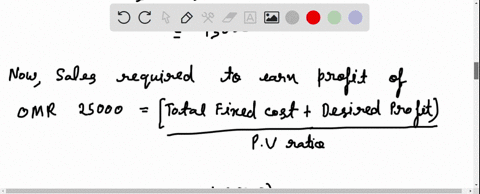 Now, Sales required to earn profit of
OMR 25000 = [Total Fixed cost + Desired Profit]
P.V ratio